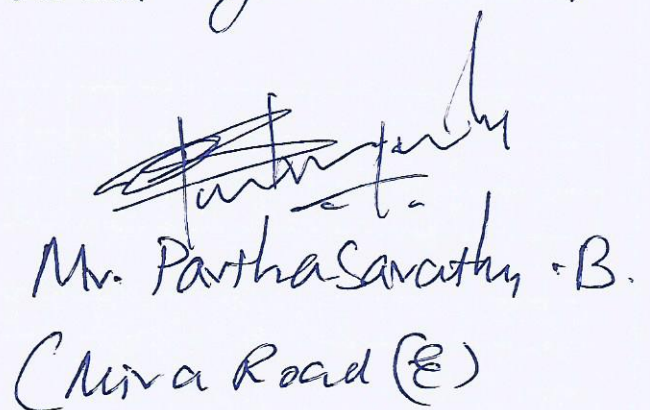 Mr. Parthasarathy .B.
(Mira Road (E)